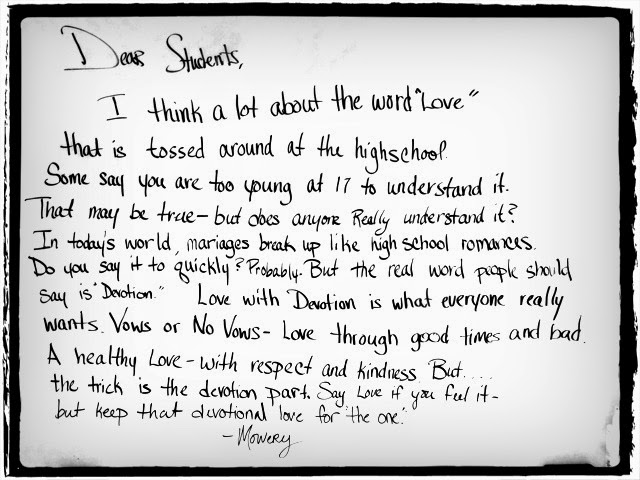 Dear Students,
I think a lot about the word "Love"
that is tossed around at the highschool.
Some say you are too young at 17 to understand it.
That may be true - but does anyone Really understand it?
In today's world, mariages break up like high school romances.
Do you say it to quickly? Probably. But the real word people should
say is "Devotion." Love with Devotion is what everyone really
wants. Vows or No Vows - Love through good times and bad.
A healthy Love - with respect and kindness. But....
the trick is the devotion part. Say Love if you feel it -
but keep that devotional love for "the one."
- Mowery